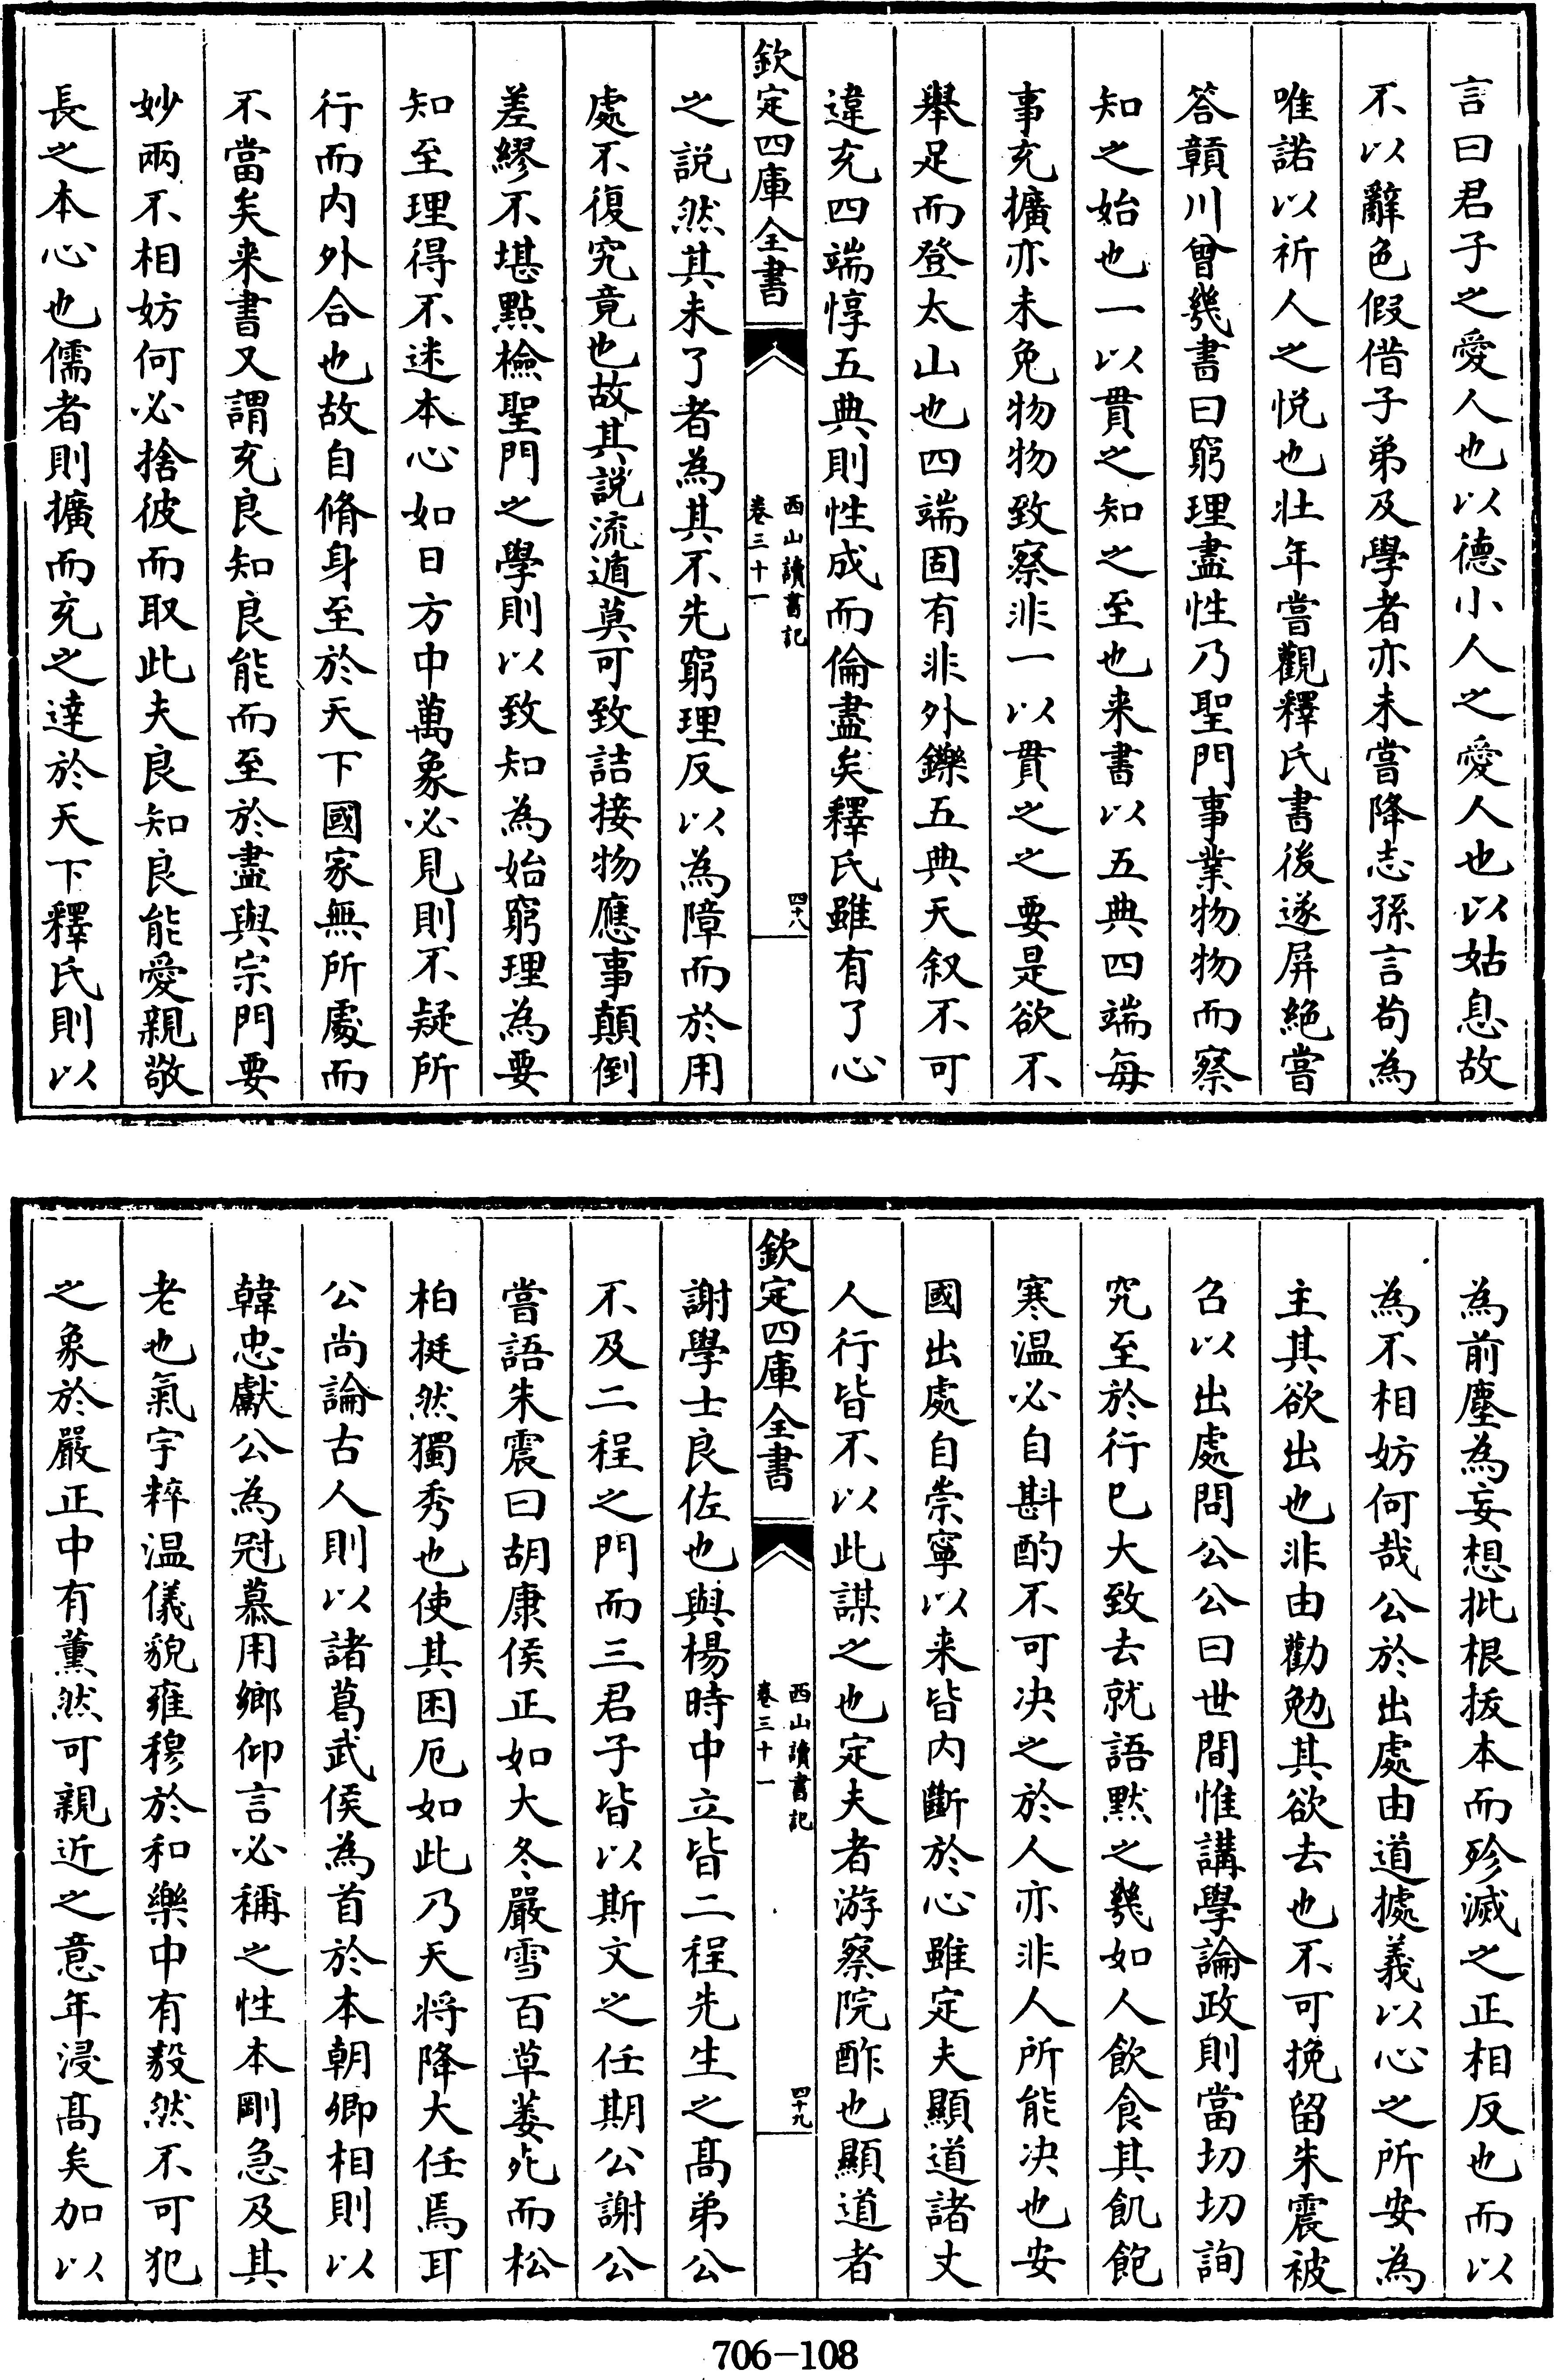 言曰君子之愛人也以德小人之愛人也以姑息故
不以辭色假借子弟及學者亦未嘗降志孫言苟為
唯諾以祈人之悦也壯年嘗觀釋氏書後遂屏絶嘗
答贑川曾幾書曰窮理盡性乃聖門事業物物而察
知之始也一以貫之知之至也来書以五典四端每
事充擴亦未免物物致察非一以貫之之要是欲不
舉足而登太山也四端固有非外鑠五典天叙不可
違充四端惇五典則性成而倫盡矣釋氏雖有了心
欽定四庫全書
西山讀書記
卷三十一
四十八
之説然其未了者為其不先窮理反以為障而於用
處不復究竟也故其説流遁莫可致詰接物應事顛倒
差繆不堪點檢聖門之學則以致知為始窮理為要
知至理得不迷本心如日方中萬象必見則不疑所
行而内外合也故自脩身至於天下國家無所處而
不當矣来書又謂充良知良能而至於盡與宗門要
妙兩不相妨何必捨彼而取此夫良知良能愛親敬
長之本心也儒者則擴而充之達於天下釋氏則以
為前塵為妄想批根拔本而殄滅之正相反也而以
為不相妨何哉公於出處由道據義以心之所安為
主其欲出也非由勸勉其欲去也不可挽留朱震被
召以出處問公公曰世間惟講學論政則當切切詢
究至於行巳大致去就語黙之幾如人飲食其飢飽
寒温必自斟酌不可决之於人亦非人所能决也安
國出處自崇寧以来皆内斷於心雖定夫顯道諸丈
人行皆不以此謀之也定夫者游察院酢也顯道者
欽定四庫全書
西山讀書記
卷三十一
四十九
謝學士良佐也與楊時中立皆二程先生之髙弟公
不及二程之門而三君子皆以斯文之任期公謝公
嘗語朱震曰胡康侯正如大冬嚴雪百草萎死而松
柏挺然獨秀也使其困厄如此乃天将降大任焉耳
公尚論古人則以諸葛武侯為首於本朝卿相則以
韓忠獻公為冠慕用鄉仰言必稱之性本剛急及其
老也氣宇粹温儀貌雍穆於和樂中有毅然不可犯
之象於嚴正中有薰然可親近之意年浸髙矣加以
706-108